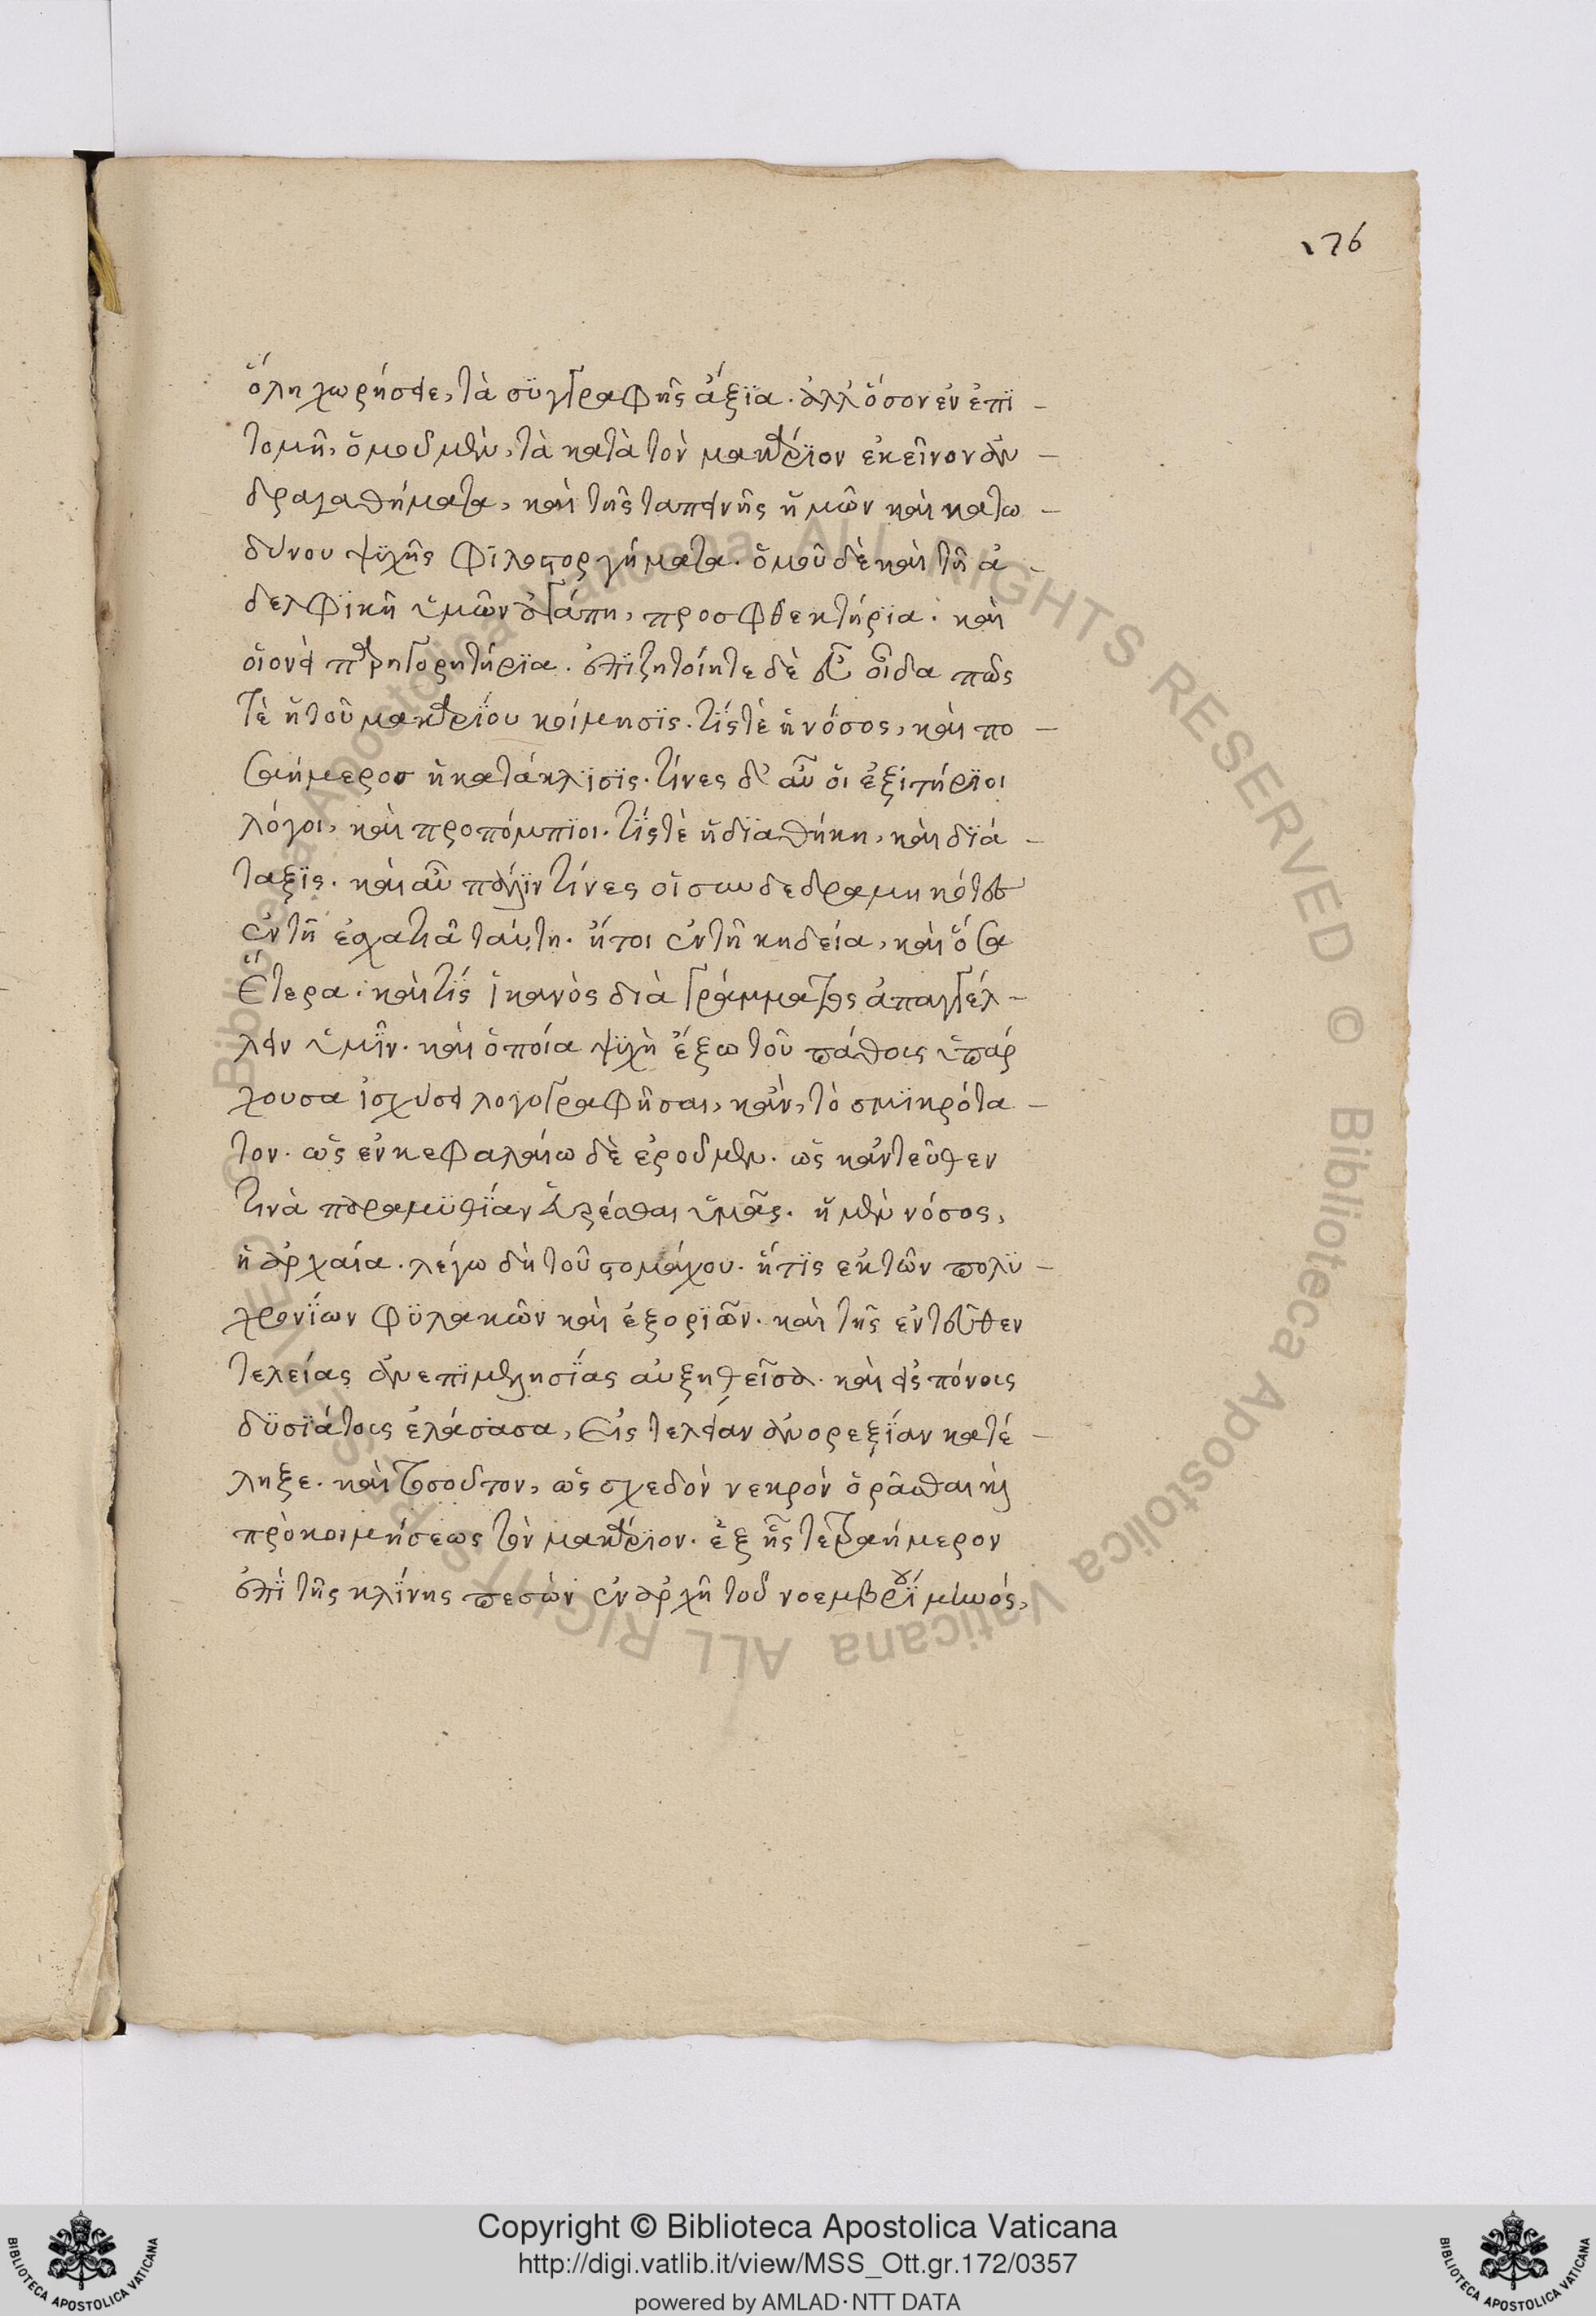 176
ὅλη χωρήσειε, τὰ συγγραφῆς ἄξια. ἀλλ' ὅσον ἐν ἐπι-
τομῆ, ὁμοῦ μὲν, τὰ κατὰ τὸν μακάριον ἐκεῖνον ἀν-
δραγαθήματα, καὶ τῆς ταπεινῆς ἡμῶν καὶ κατω-
δύνου ψυχῆς φιλοστοργήματα. ὁμοῦ δὲ καὶ τῆ ἀ-
δελφικῆ ὑμῶν ἀγάπη, προσφθεκτήρια. καὶ
οἱονεὶ παρηγορητήρια. ἐπιζητοίητε δὲ εὖ οἶδα πῶς
τὲ ἡ τοῦ μακαρίου κοίμησις. τίς τὲ ἡ νόσος, καὶ πο-
σαήμερος ἡ κατάκλισις. τίνες δ' αὖ οἱ ἐξιτήριοι
λόγοι, καὶ προπόμπιοι. τίς τὲ ἡ διαθήκη, καὶ διά-
ταξις. καὶ αὖ πάλιν τίνες οἱ συνδεδραμηκότες
ἐν τῆ ἐσχατιᾶ ταύτη. ἤτοι ἐν τῆ κηδεία, καὶ ὅσα
ἕτερα. καὶ τίς ἱκανὸς διὰ γράμματος ἀπαγγέλ-
λειν ὑμῖν. καὶ ὁποία ψυχὴ ἔξω τοῦ πάθους ὑπάρ
χουσα ἰσχύσει λογογραφῆσαι, κἂν, τὸ σμικρότα-
τον. ὡς ἐν κεφαλαίω δὲ ἐροῦμεν. ὡς κἀντεῦθεν
τινὰ παραμυθίαν ἀρέσθαι ὑμᾶς. ἡ μὲν νόσος,
ἡ ἀρχαία. λέγω δὴ τοῦ στομάχου. ἥτις ἐκ τῶν πολυ-
χρονίων φυλακῶν καὶ ἐξοριῶν. καὶ τῆς ἐντεῦθεν
τελείας ἀνεπιμελησίας αὐξηθεῖσα. καὶ εἰς πόνους
δυσιάτους ἐλάσασα, εἰς τελείαν ἀνορεξίαν κατέ-
ληξε. καὶ τοσοῦτον, ὡς σχεδὸν νεκρὸν ὁρᾶσθαι καὶ
πρὸ κοιμήσεως τὸν μακάριον. ἐξ ἧς τετραήμερον
ἐπὶ τῆς κλίνης πεσὼν ἐν ἀρχῆ τοῦ νοεμβρίου μηνός,
Copyright © Biblioteca Apostolica Vaticana
http://digi.vatlib.it/view/MSS_Ott.gr.172/0357
powered by AMLAD·NTT DATA